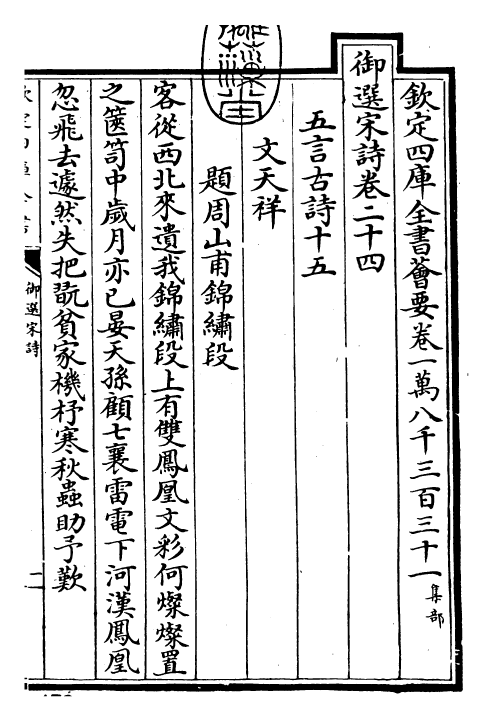 欽定四庫全書薈要卷一萬八千三百三十一集部
御選宋詩卷二十四
五言古詩十五
文天祥
題周山甫錦繡段
客從西北來遺我錦繡段上有雙鳳凰文彩何燦燦置
之篋笥中歲月亦已晏天孫顧七襄雷電下河漢鳳凰
忽飛去遽然失把翫貧家機杼寒秋蟲助予歎
御選宋詩